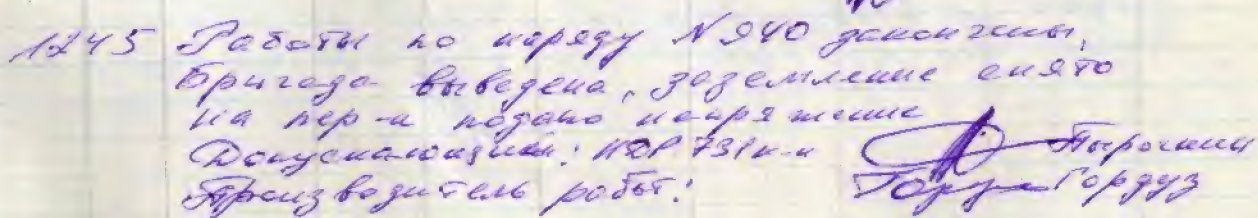 1245 Работы по наряду №940 закончены,
бригада выведена, заземление снято
на пер-н подано напряжение
Допускающий: НДР 731 к-н Пырочкин
Производитель работ: Гордуз